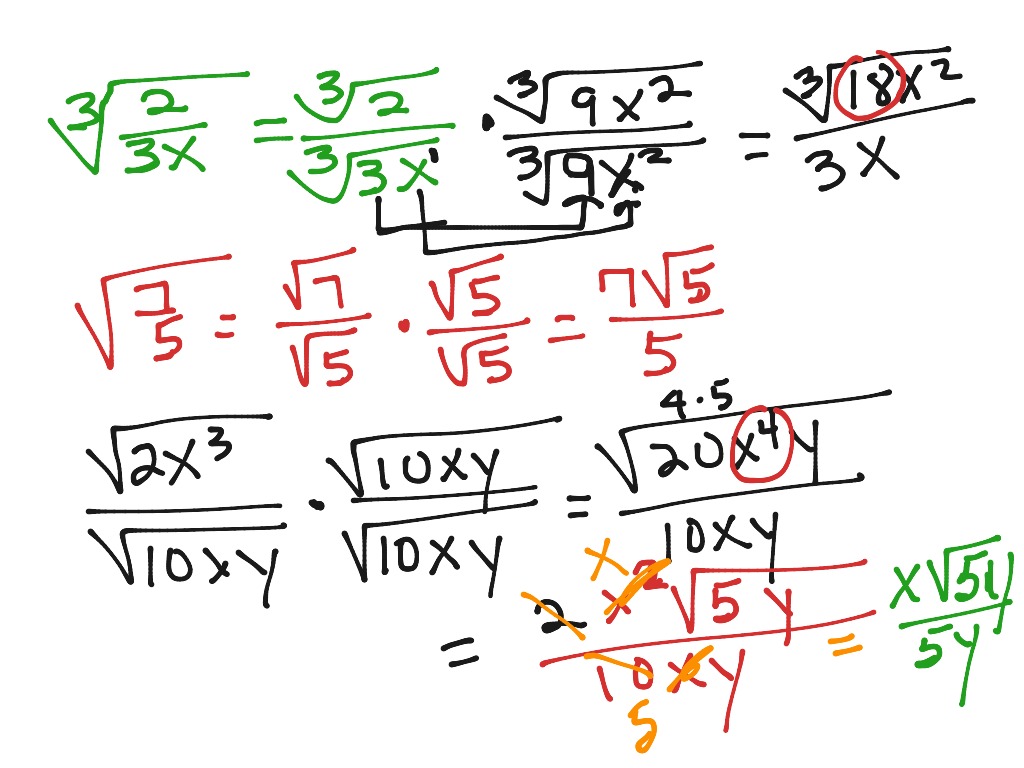 ∛(2/3x) = ∛2/∛(3x¹) · ∛(9x²)/∛(9x²) = ∛(18x²)/3x
√(7/5) = √7/√5 · √5/√5 = 7√5/5
4·5
√(2x³)/√(10xy) · √(10xy)/√(10xy) = √(20x⁴y)/10xy
x
= 2x²√(5y)/10xy = x√(5y)/5y
5